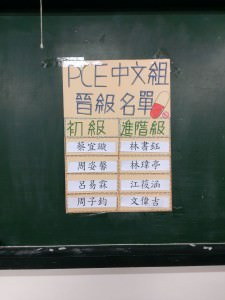 PCE中文組
晉級名單
初級 進階級
蔡宜璇 林書鈺
周姿馨 林瑋亭
呂易霖 江筱涵
周子鈞 文偉吉